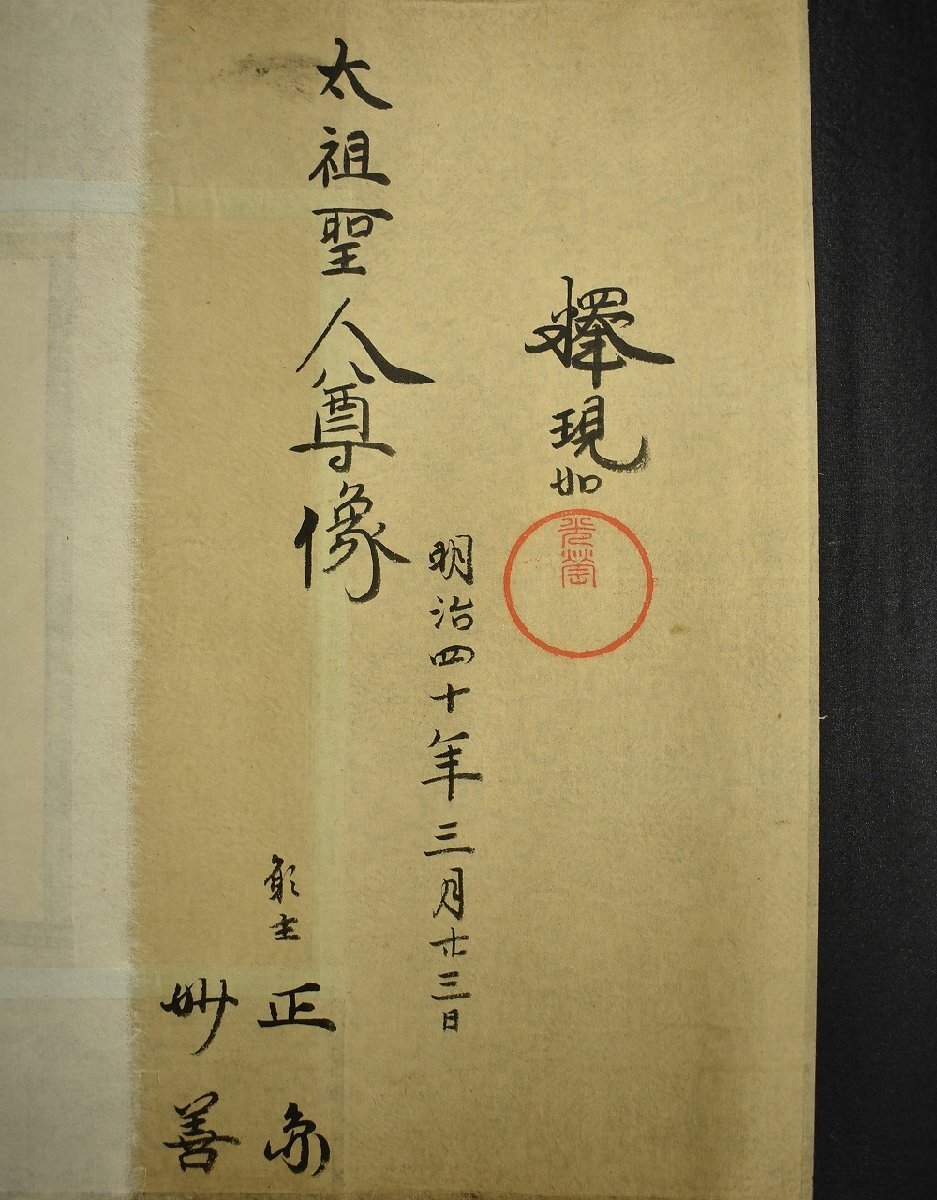 釋現如
光瑩
明治四十年三月廿三日
太祖聖人尊像
願主
正
妙善